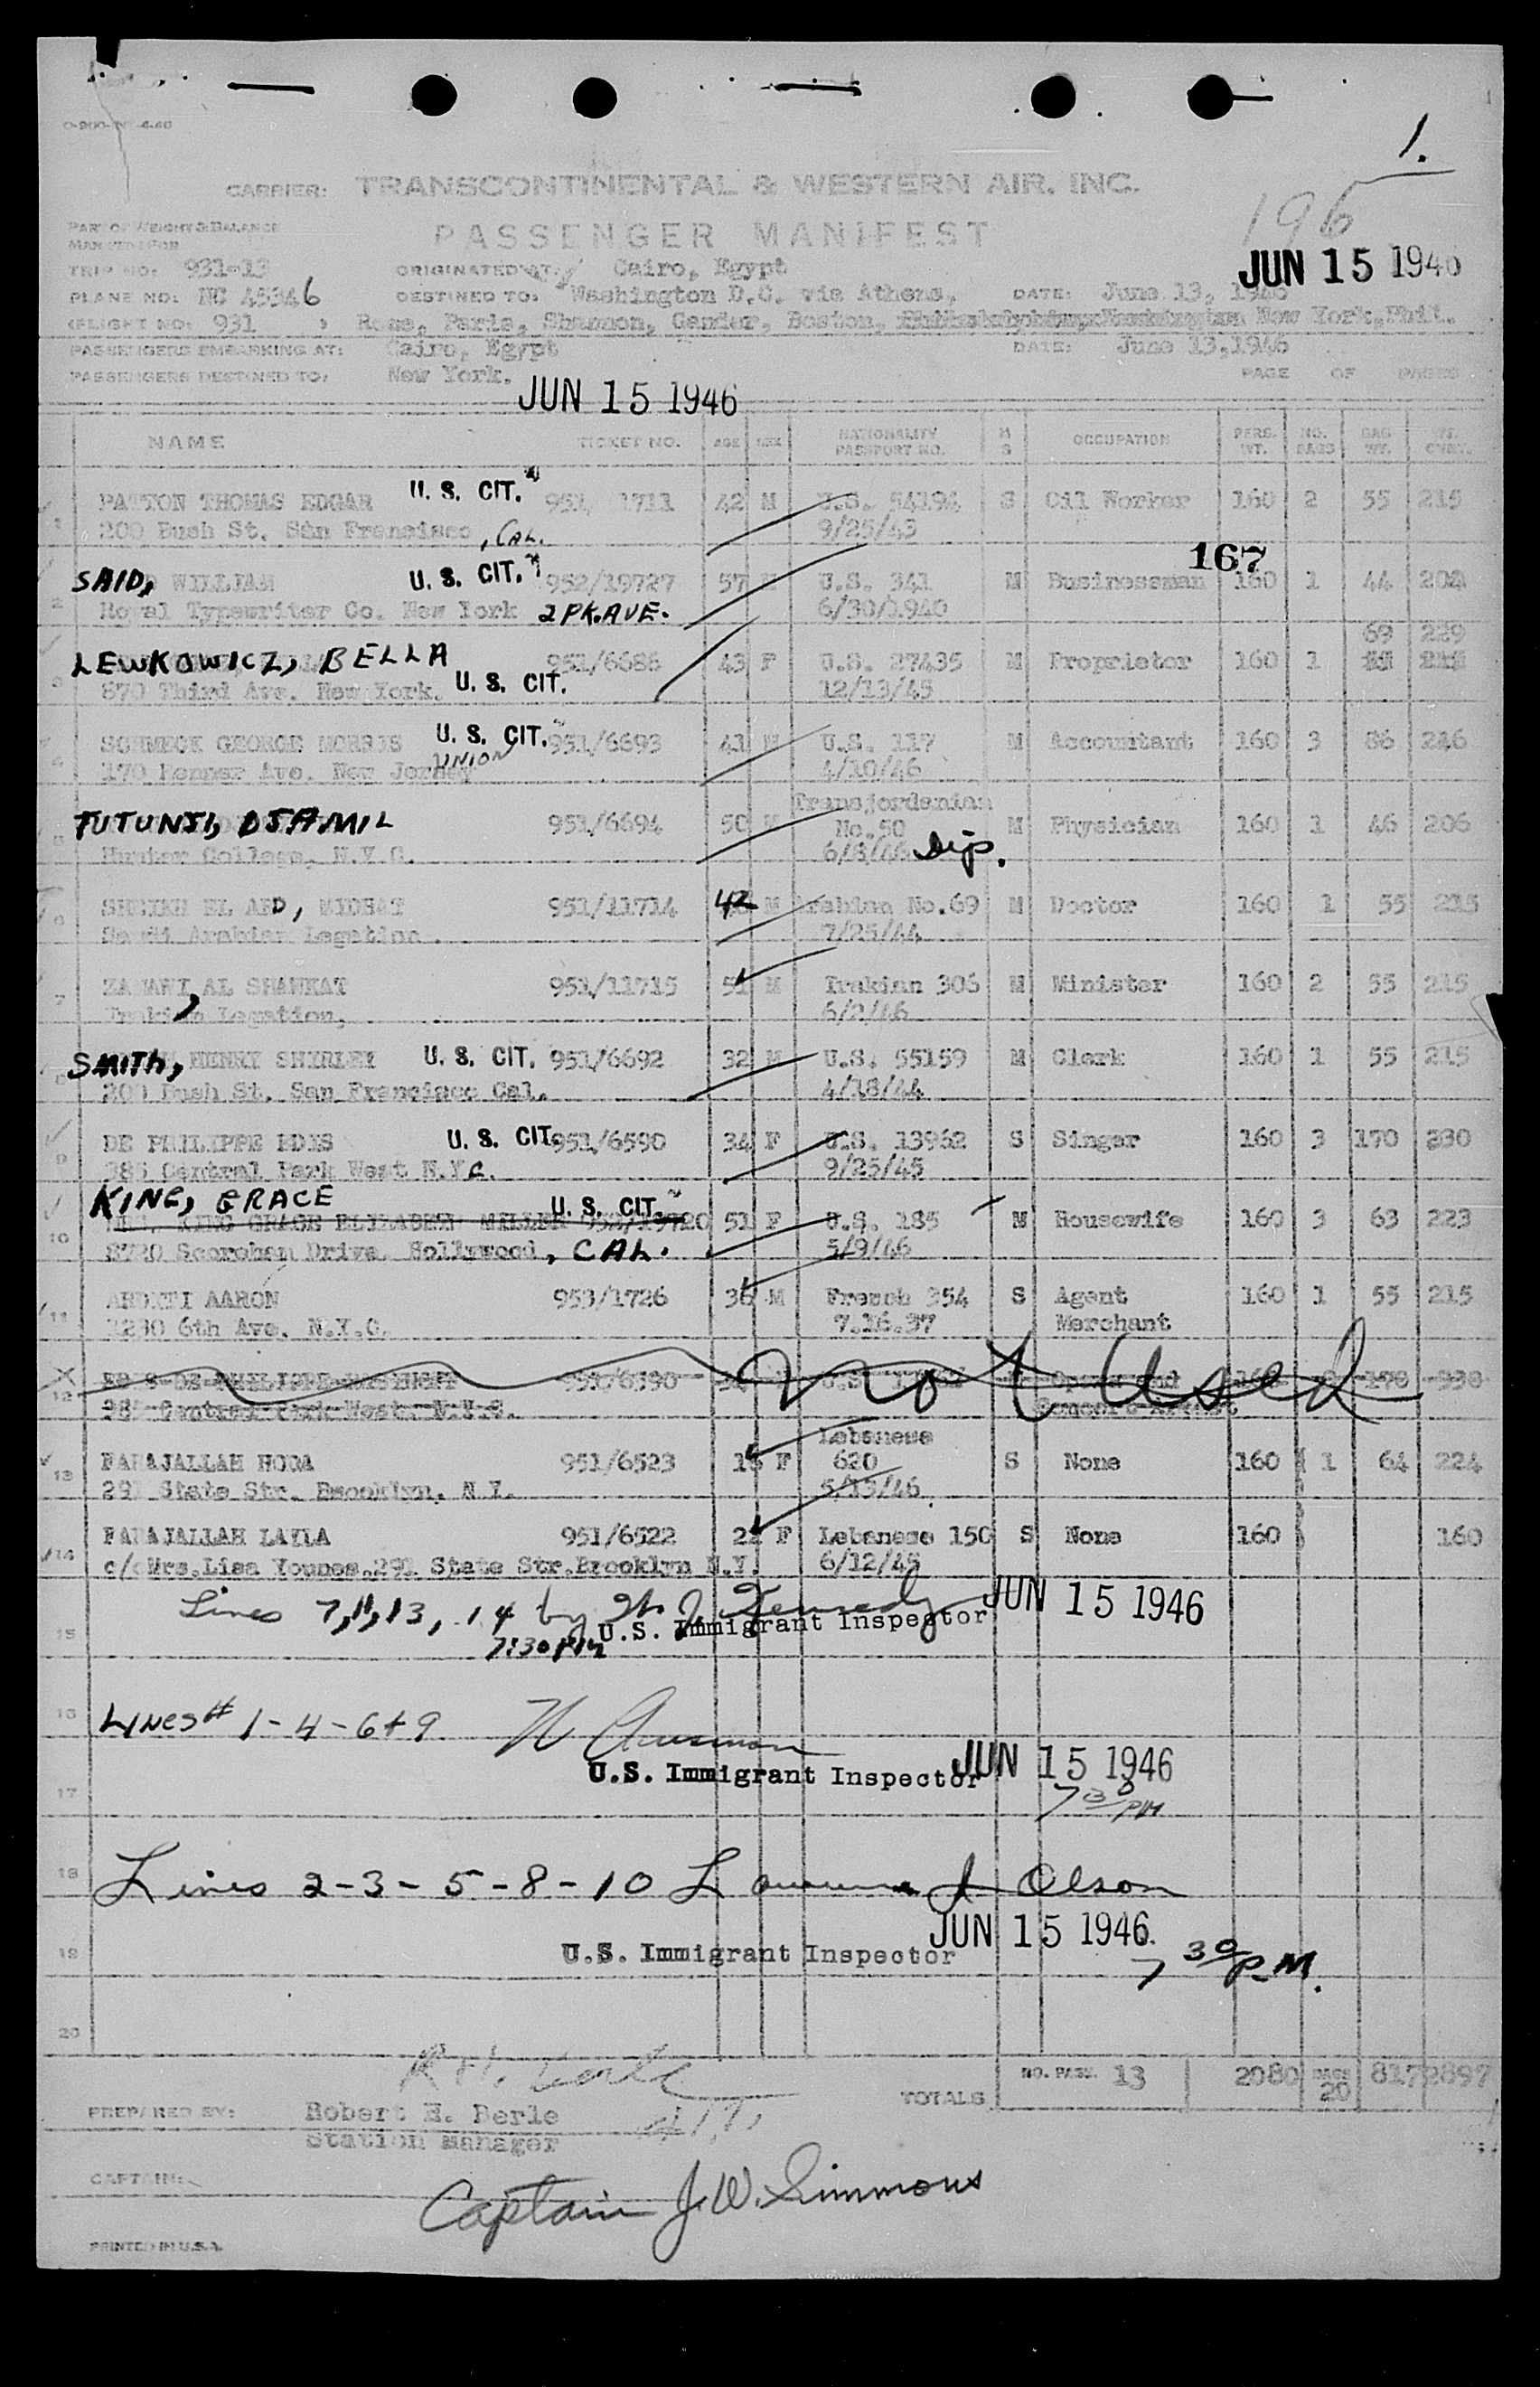 1.
CARRIER: TRANSCONTINENTAL & WESTERN AIR, INC.
196
PART OF WEIGHT & BALANCE
MANIFEST FOR
PASSENGER MANIFEST
JUN 15 1946
TRIP NO: 931-13 ORIGINATED AT: Cairo, Egypt
PLANE NO: NC 45346 DESTINED TO: Washington D.C. via Athens, DATE: June 13, 1946
(FLIGHT NO: 931 ) Rome, Paris, Shannon, Gander, Boston, New York, Phil.
PASSENGERS EMBARKING AT: Cairo, Egypt DATE: June 13, 1946
PASSENGERS DESTINED TO: New York. PAGE OF PAGES
JUN 15 1946
NAME TICKET NO. AGE SEX NATIONALITY PASSPORT NO. M S OCCUPATION PERS. WT. NO. BAGS BAG WT.
1 PATTON THOMAS EDGAR U. S. CIT. 951/ 1711 42 M U.S. 54194 S Oil Worker 160 2 55 215
200 Bush St. San Francisco, CAL. 9/25/43
167
2 SAID, WILLIAM U. S. CIT. 952/19727 57 M U.S. 341 M Businessman 160 1 44 204
Royal Typewriter Co. New York 2 PK. AVE. 6/30/1940
69 229
3 LEWKOWICZ, BELLA 951/6686 43 F U.S. 27435 M Proprietor 160 1
870 Third Ave. New York. U. S. CIT. 12/13/45
4 SCHMECK GEORGE MORRIS U. S. CIT. 951/6693 41 M U.S. 117 M Accountant 160 3 86 246
170 Ave. New Jersey UNION 4/10/46
Transjordanian
5 TUTUNJI, DJAMIL 951/6694 50 M No.50 M Physician 160 1 46 206
Hunter College, N.Y.C. 6/8/46 Dip.
6 SHEIKH EL ARD, MIDHAT 951/11714 42 M Arabian No.69 M Doctor 160 1 55 215
Saudi Arabian Legation. 7/25/44
7 AL SHAWKAT 951/11715 51 M Irakian 306 M Minister 160 2 55 215
Irakian Legation, 6/2/46
8 SMITH, HENRY SHIRLEY U. S. CIT. 951/6692 32 M U.S. 55159 M Clerk 160 1 55 215
200 Bush St. San Francisco Cal. 4/18/44
9 DE PHILIPPE EDIS U. S. CIT. 951/6590 34 F U.S. 13962 S Singer 160 3 170 330
385 Central Park West N.Y.C. 9/25/45
KING, GRACE U. S. CIT.
10 KING GRACE ELIZABETH MILLER 952/19720 51 F U.S. 185 M Housewife 160 3 63 223
Drive, Hollywood, CAL. 5/9/46
11 ARDITTI AARON 953/1726 36 M French 354 S Agent 160 1 55 215
1230 6th Ave. N.Y.C. 7.16.37 Merchant
12 951/6590 170 330
385 Central Park West. N.Y.C. Concert Artist
Not Used
Lebanese
13 FARAJALLAH HODA 951/6523 F 620 S None 160 1 64 224
291 State Str. Brooklyn, N.Y. 5/13/46
14 FARAJALLAH LAYLA 951/6522 22 F Lebanese 150 S None 160 160
c/o Mrs. Lisa Younes, 291 State Str. Brooklyn N.Y. 6/12/45
Lines 7, 11, 13, 14 by W. J. Kennedy JUN 15 1946
15 7:30 PM U.S. Immigrant Inspector
16 Lines # 1-4-6+9
U.S. Immigrant Inspector JUN 15 1946
17 7 30 PM
18 Lines 2-3-5-8-10 J. Olson
JUN 15 1946
19 U.S. Immigrant Inspector 7 30 P.M.
20
TOTALS NO. PASS. 13 2080 BAGS 20 817 2897
PREPARED BY: Robert H. Berle
Station Manager
CAPTAIN:
Captain J.W. Simmons
PRINTED IN U.S.A.